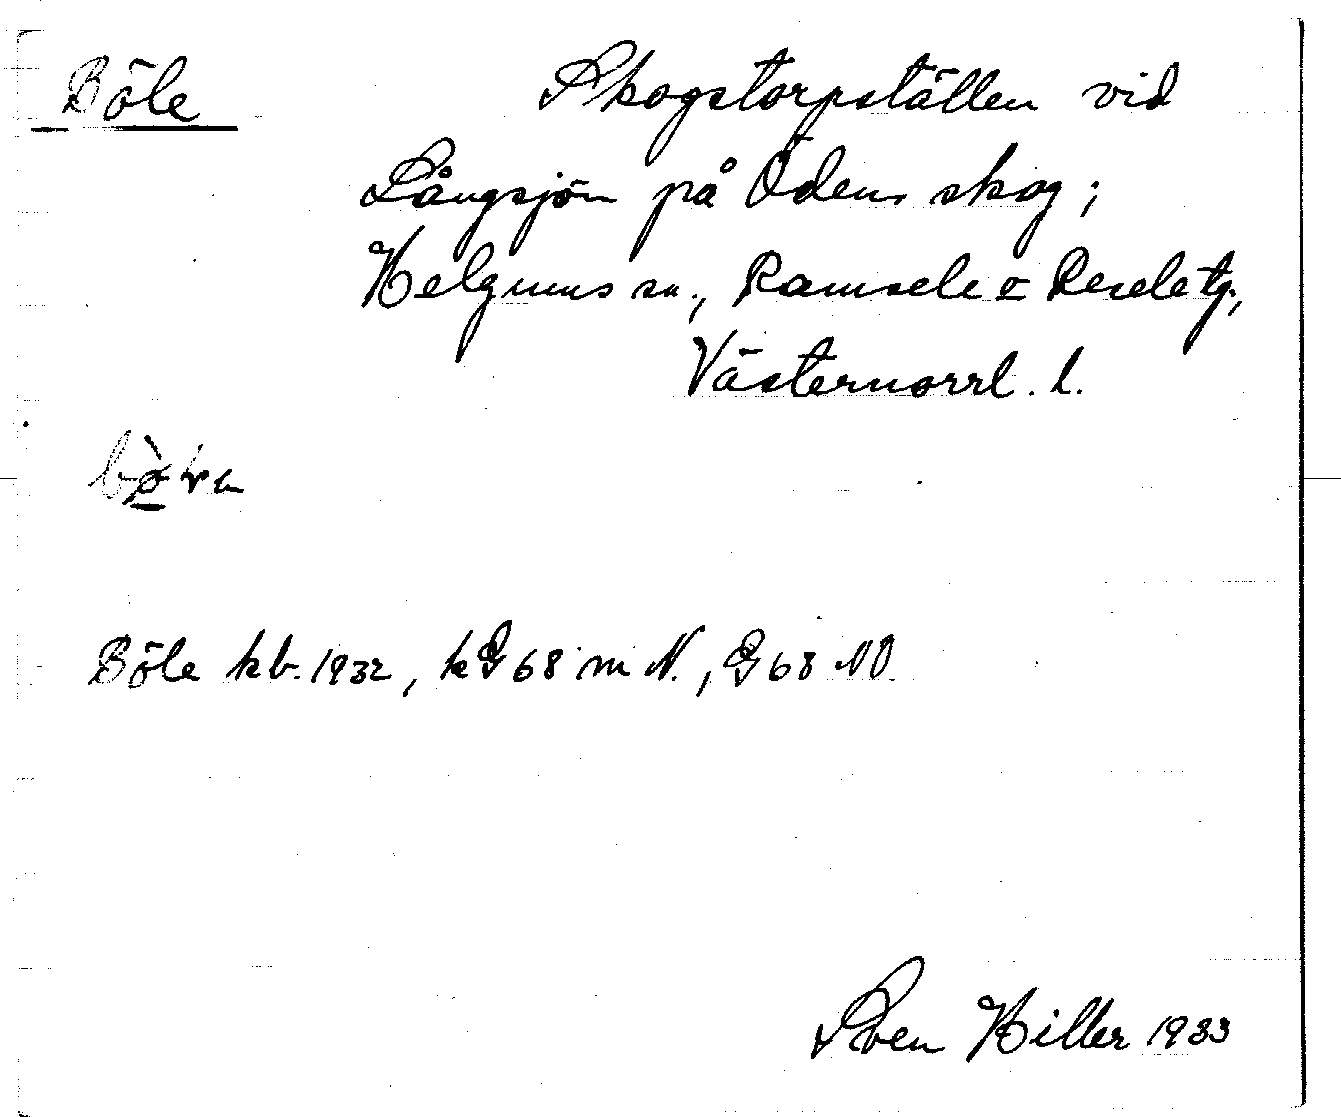 Böle Skogstorpställen vid
Långsjön på Ödens skog;
Helgums sn., Ramsele o Resele tg.,
Västernorrl. l.
Böle kb. 1932, kG 68 m N., G 68 NO
Sven Hiller 1933